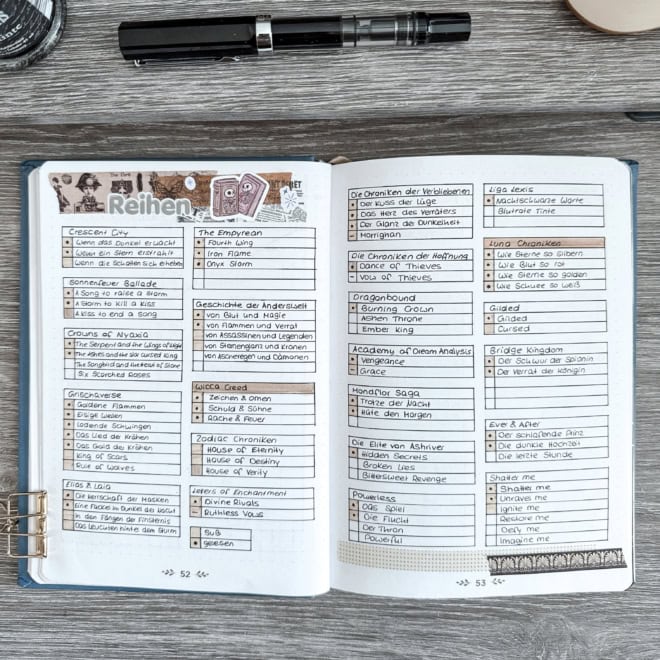 Reihen
Crescent City
Wenn das Dunkel erwacht
Wenn ein Stern erstrahlt
Wenn die Schatten sich erheben
Sonnenfeuer Ballade
A Song to raise a Storm
A Storm to kill a Kiss
A kiss to end a Song
Crowns of Nyaxia
The Serpent and the Wings of Night
The Ashes and the Star cursed King
The Songbird and the Heart of Stone
Six Scorched Roses
Grischaverse
Goldene Flammen
Eisige Wellen
Lodernde Schwingen
Das Lied der Krähen
Das Gold der Krähen
King of Scars
Rule of Wolves
Elias & Laia
Die Herrschaft der Masken
Eine Fackel im Dunkel der Nacht
In den Fängen der Finsternis
Das Leuchten hinter dem Sturm
The Empyrean
Fourth Wing
Iron Flame
Onyx Storm
Geschichte der Anderswelt
von Blut und Magie
von Flammen und Verrat
von Assassinen und Legenden
von Sternenglanz und Kronen
von Ascheregen und Dämonen
Wicca Creed
Zeichen & Omen
Schuld & Sühne
Rache & Feuer
Zodiac Chroniken
House of Eternity
House of Destiny
House of Verity
Letters of Enchantment
Divine Rivals
Ruthless Vows
SuB
gelesen
52
Die Chroniken der Verbliebenen
Der Kuss der Lüge
Das Herz des Verräters
Der Glanz der Dunkelheit
Morrighan
Die Chroniken der Hoffnung
Dance of Thieves
Vow of Thieves
Dragonbound
Burning Crown
Ashen Throne
Ember King
Academy of Dream Analysis
Vengeance
Grace
Hondflor Saga
Trotze der Nacht
Hüte den Morgen
Die Elite von Ashriver
Hidden Secrets
Broken Lies
Bittersweet Revenge
Powerless
Das Spiel
Die Flucht
Der Thron
Powerful
Liga Lexis
Nachtschwarze Worte
Blutrote Tinte
Luna Chroniken
Wie Sterne so silbern
Wie Blut so rot
Wie Sterne so golden
Wie Schnee so weiß
Gilded
Gilded
Cursed
Bridge Kingdom
Der Schwur der Spionin
Der Verrat der Königin
Ever & After
Der schlafende Prinz
Die dunkle Hochzeit
Die letzte Stunde
Shatter me
Shatter me
Unravel me
Ignite me
Restore me
Defy me
Imagine me
53